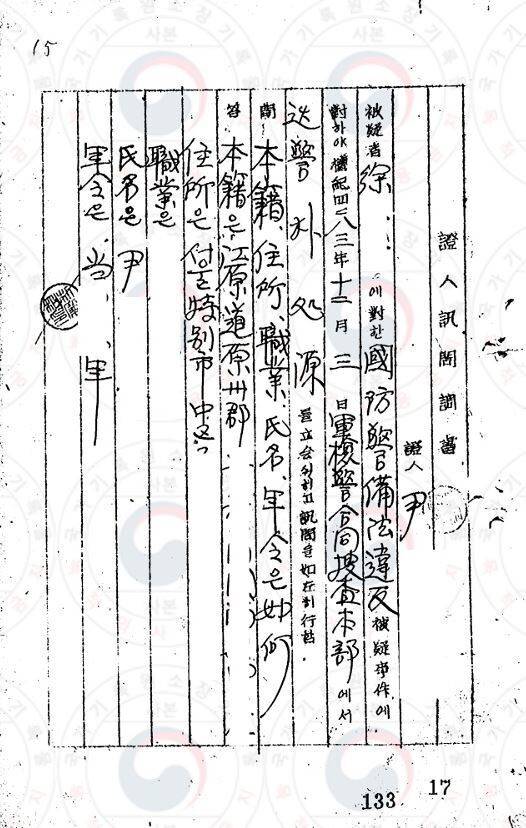 15
證人訊問調書
證人 尹
被疑者 徐 에 對한 國防警備法違反 被疑事件에
對하야 檀紀四二八三年十二月三日 軍檢警合同捜査本部에서
朴 源 을 立会 訊問을 如左히 行함.
問 本籍、住所、職業、氏名、年令은 如何
答 本籍은 江原道原州郡
住所은 特別市 中区
職業은
氏名은 尹
年令은 当 年
133
17